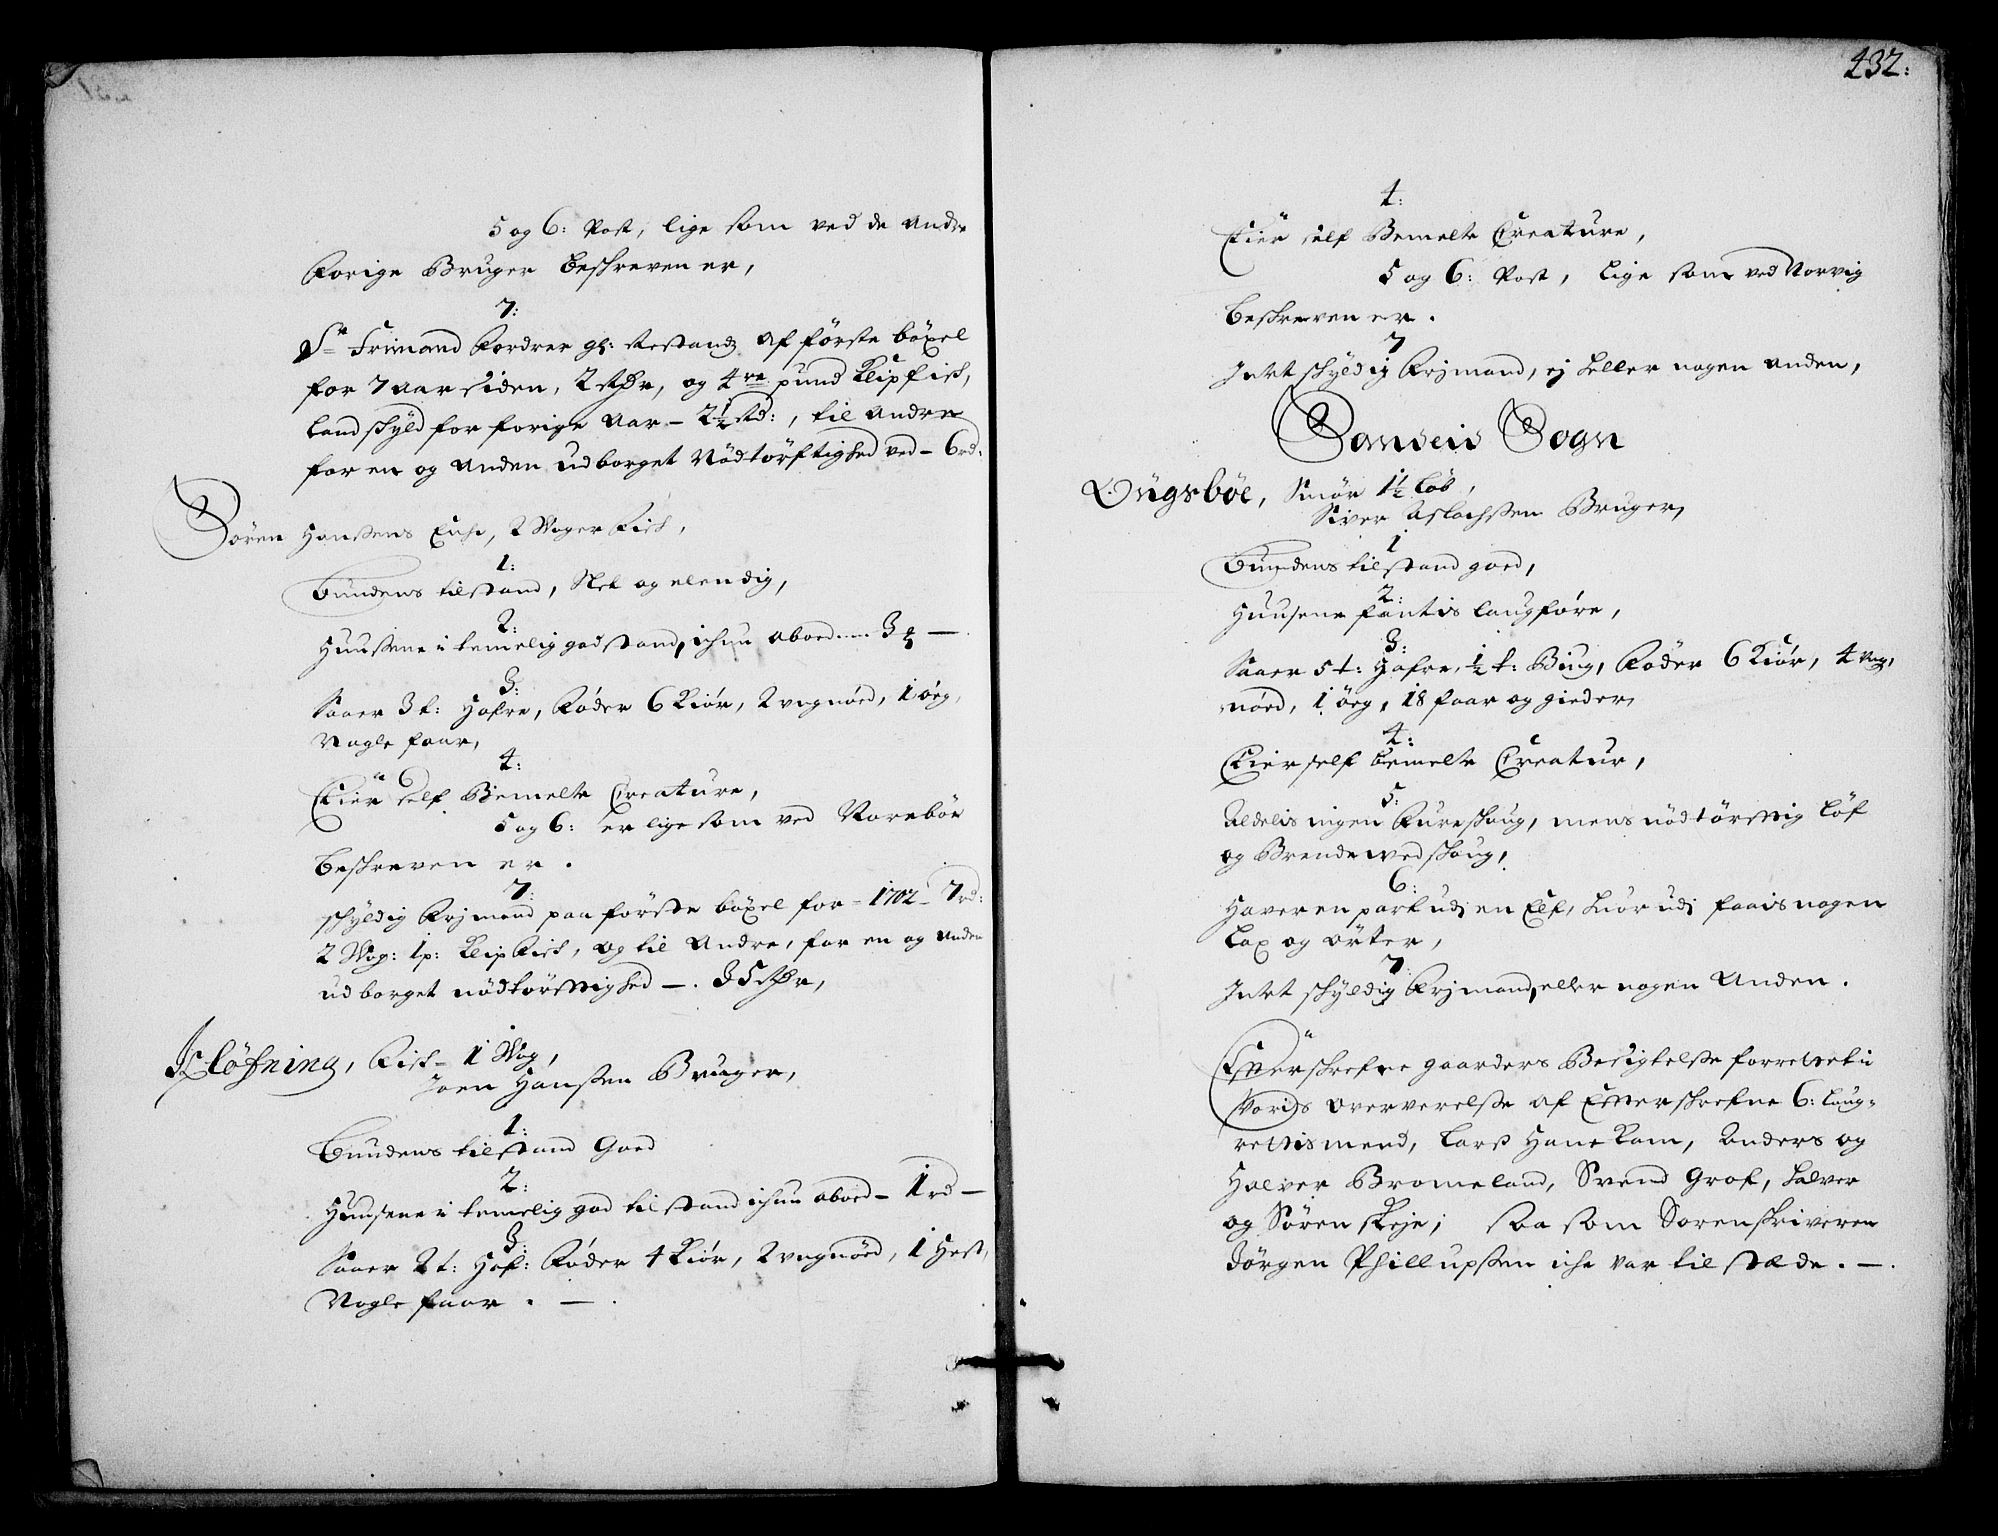 5 og 6: Post, lige som ved de andre
Forige Bruger beskreven er,
7:
Sr Frimand Fordrer gl: Restands af første bøxel
for 7 aar siden, 2 rdr, og 4re pund Klipfisk,
landskyld for forige aar – 2½ rd:, til andre
for en og anden udborget Nödtörftighed ved – 6 rd:
Sören Hanssens Enche, 2 Woger Fisk,
1:
Bundens tilstand, Slet og elendig,
2:
Huussene i temelig god stand, ichun aboed 3
3:
Saaer 3 t: Hafre, Föder 6 Kiör, 2 ungnöed, 1 ög,
Nogle faar,
4:
Eier self Bemelte Creature,
5 og 6: er lige som ved Noreböe
beskreven er.
7:
skyldig Frjmand paa förste böxel for – 1702 – 7 rd:
2 Wog: 1 p: Klipfisk, og til Andre, for en og anden
udborget nödtörftighed –. 35 rdr,
Klöfning, Fisk – 1 Wog,
Joen Hanssen Bruger,
1:
Bundens tilstand Goed
2:
Huusene i temelig god tilstand ichun aboed – 1 rd –
3:
Saaer 2 t: Haf: Föder 4 Kiör, 2 ungnöed, 1 Hest,
Nogle faar. –.
432:
4:
Eier self Bemelte Creature,
5 og 6: Post, lige som ved Norvig
beskreven er.
7
Intet skyldig Frjmand, ej heller nogen anden,
Sanseid Sogn
Öugsböe, Smör 1½ løb,
Siver Aslachssen Bruger,
1
Bundens tilstand goed,
2:
Huusene fantis laugföre,
3:
Saaer 5 t: Hafre, ½ t: Biug, Föder 6 Kiör, 4 ung
nöed, 1 ög, 18 faar og gieder,
4:
Eier self bemelte Creatur,
5:
Aldelis ingen Fureskoug, mens nödtörfftig löf
og Brendewed skoug,
6:
Haver en part udj en Elf, huor udj faais nogen
lax og örter,
7:
Intet skyldig Frjmand, eller nogen Anden.
Efterskrefne gaarders Besigtelsse forrettet i
Voris ververelsse af Effterskrefne 6: laug-
rettismend, Larss Hanekam, Anders og
Halver Bromeland, Svend Grof, Halver
og Sören Skeje; saa som Sorenskriveren
Jörgen Phillupssen iche var tilstæde. –.